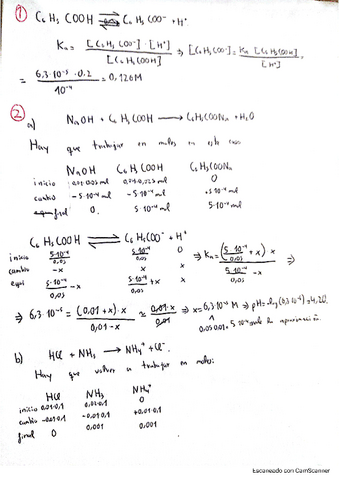 ① C₆H₅COOH ⇌ C₆H₅COO⁻ + H⁺
Ka = [C₆H₅COO⁻]·[H⁺] / [C₆H₅COOH] ⇒ [C₆H₅COO⁻] = Ka [C₆H₅COOH] / [H⁺]
= 6,3·10⁻⁵ · 0,2 / 10⁻⁴ = 0,126 M
②
a) NaOH + C₆H₅COOH ⟶ C₆H₅COONa + H₂O
Hay que trabajar en moles en este caso
NaOH C₆H₅COOH C₆H₅COONa
inicio 0
cambio −5·10⁻⁴ mol −5·10⁻⁴ mol +5·10⁻⁴ mol
final 0. 5·10⁻⁴ mol 5·10⁻⁴ mol
C₆H₅COOH ⇌ C₆H₅COO⁻ + H⁺
inicio 5·10⁻⁴/0,05 5·10⁻⁴/0,05 0 ⇒ Ka = (5·10⁻⁴/0,05 + x) x / (5·10⁻⁴/0,05 − x) ⇒
cambio −x x x
equi 5·10⁻⁴/0,05 − x 5·10⁻⁴/0,05 + x x
⇒ 6,3·10⁻⁵ = (0,01 + x)·x / 0,01 − x ≈ 0,01·x / 0,01 ⇒ x = 6,3·10⁻⁵ M ⇒ pH = −log(6,3·10⁻⁵) = 4,20
aproximación
b) HCl + NH₃ ⟶ NH₄⁺ + Cl⁻.
Hay que volver a trabajar en moles:
HCl NH₃ NH₄⁺
inicio 0,01·0,1 0
cambio −0,01·0,1 −0,01·0,1 +0,01·0,1
final 0 0,001 0,001
Escaneado con CamScanner